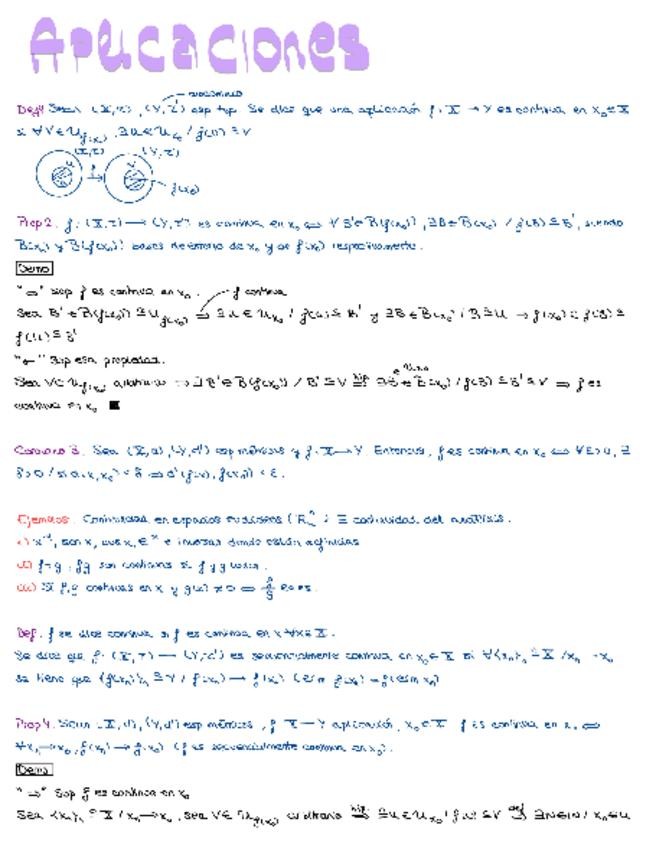 Aplicaciones
Def 1 Sean (X,τ), (Y,τ') esp top. Se dice que una aplicación f: X → Y es continua en x₀∈X
si ∀V∈U_f(x₀), ∃U∈U_x₀ / f(U) ⊆ V
(X,τ) (Y,τ')
U f V f(x₀)
Prop 2. f: (X,τ) → (Y,τ') es continua en x₀ ⇔ ∀B'∈B(f(x₀)), ∃B∈B(x₀) / f(B) ⊆ B', siendo
B(x₀) y B(f(x₀)) bases de entorno de x₀ y de f(x₀) respectivamente.
Demo
"⇒" Sup f es continua en x₀. f continua
Sea B'∈B(f(x₀)) ⊆ U_f(x₀) ⇒ ∃U∈U_x₀ / f(U) ⊆ B' y ∃B∈B(x₀) / B ⊆ U → f(B) ⊆ f(U) ⊆
"⇐" Sup esa propiedad.
Sea V∈U_f(x₀) arbitrario ⇒ ∃B'∈B(f(x₀)) / B' ⊆ V ⇒ ∃B∈B(x₀) / f(B) ⊆ B' ⊆ V ⇒ f es
continua en x₀ ■
Corolario 3. Sean (X,d), (Y,d') esp métricos y f: X → Y. Entonces, f es continua en x₀ ⇔ ∀ε>0, ∃
δ>0 / si d(x,x₀) < δ ⇒ d'(f(x), f(x₀)) < ε.
Ejemplos. Continuidad en espacios euclídeos ≡ continuidad del análisis.
i) sen x, cos x, e^x e inversas donde están definidas
ii) f+g, fg son continuas si f y g
iii) Si f,g continuas en x y g(x) ≠ 0 ⇒ f/g
Def. f se dice continua si f es continua en x ∀x∈X.
Se dice que f: (X,τ) → (Y,τ') es secuencialmente continua en x₀∈X si ∀{xₙ}ₙ ⊆ X / xₙ → x₀
se tiene que {f(xₙ)}ₙ ⊆ Y / f(xₙ) → f(x₀) (lím f(xₙ) = f(lím xₙ))
Prop 4. Sean (X,d), (Y,d') esp métricos, f: X → Y aplicación, x₀∈X f es continua en x₀ ⇔
∀xₙ → x₀, f(xₙ) → f(x₀) (f es secuencialmente continua en x₀).
Demo
"⇒" Sup f es continua en x₀
Sea {xₙ}ₙ ⊆ X / xₙ → x₀, sea V∈U_f(x₀) arbitrario ⇒ ∃U∈U_x₀ / f(U) ⊆ V ⇒ ∃N∈ℕ / xₙ∈U